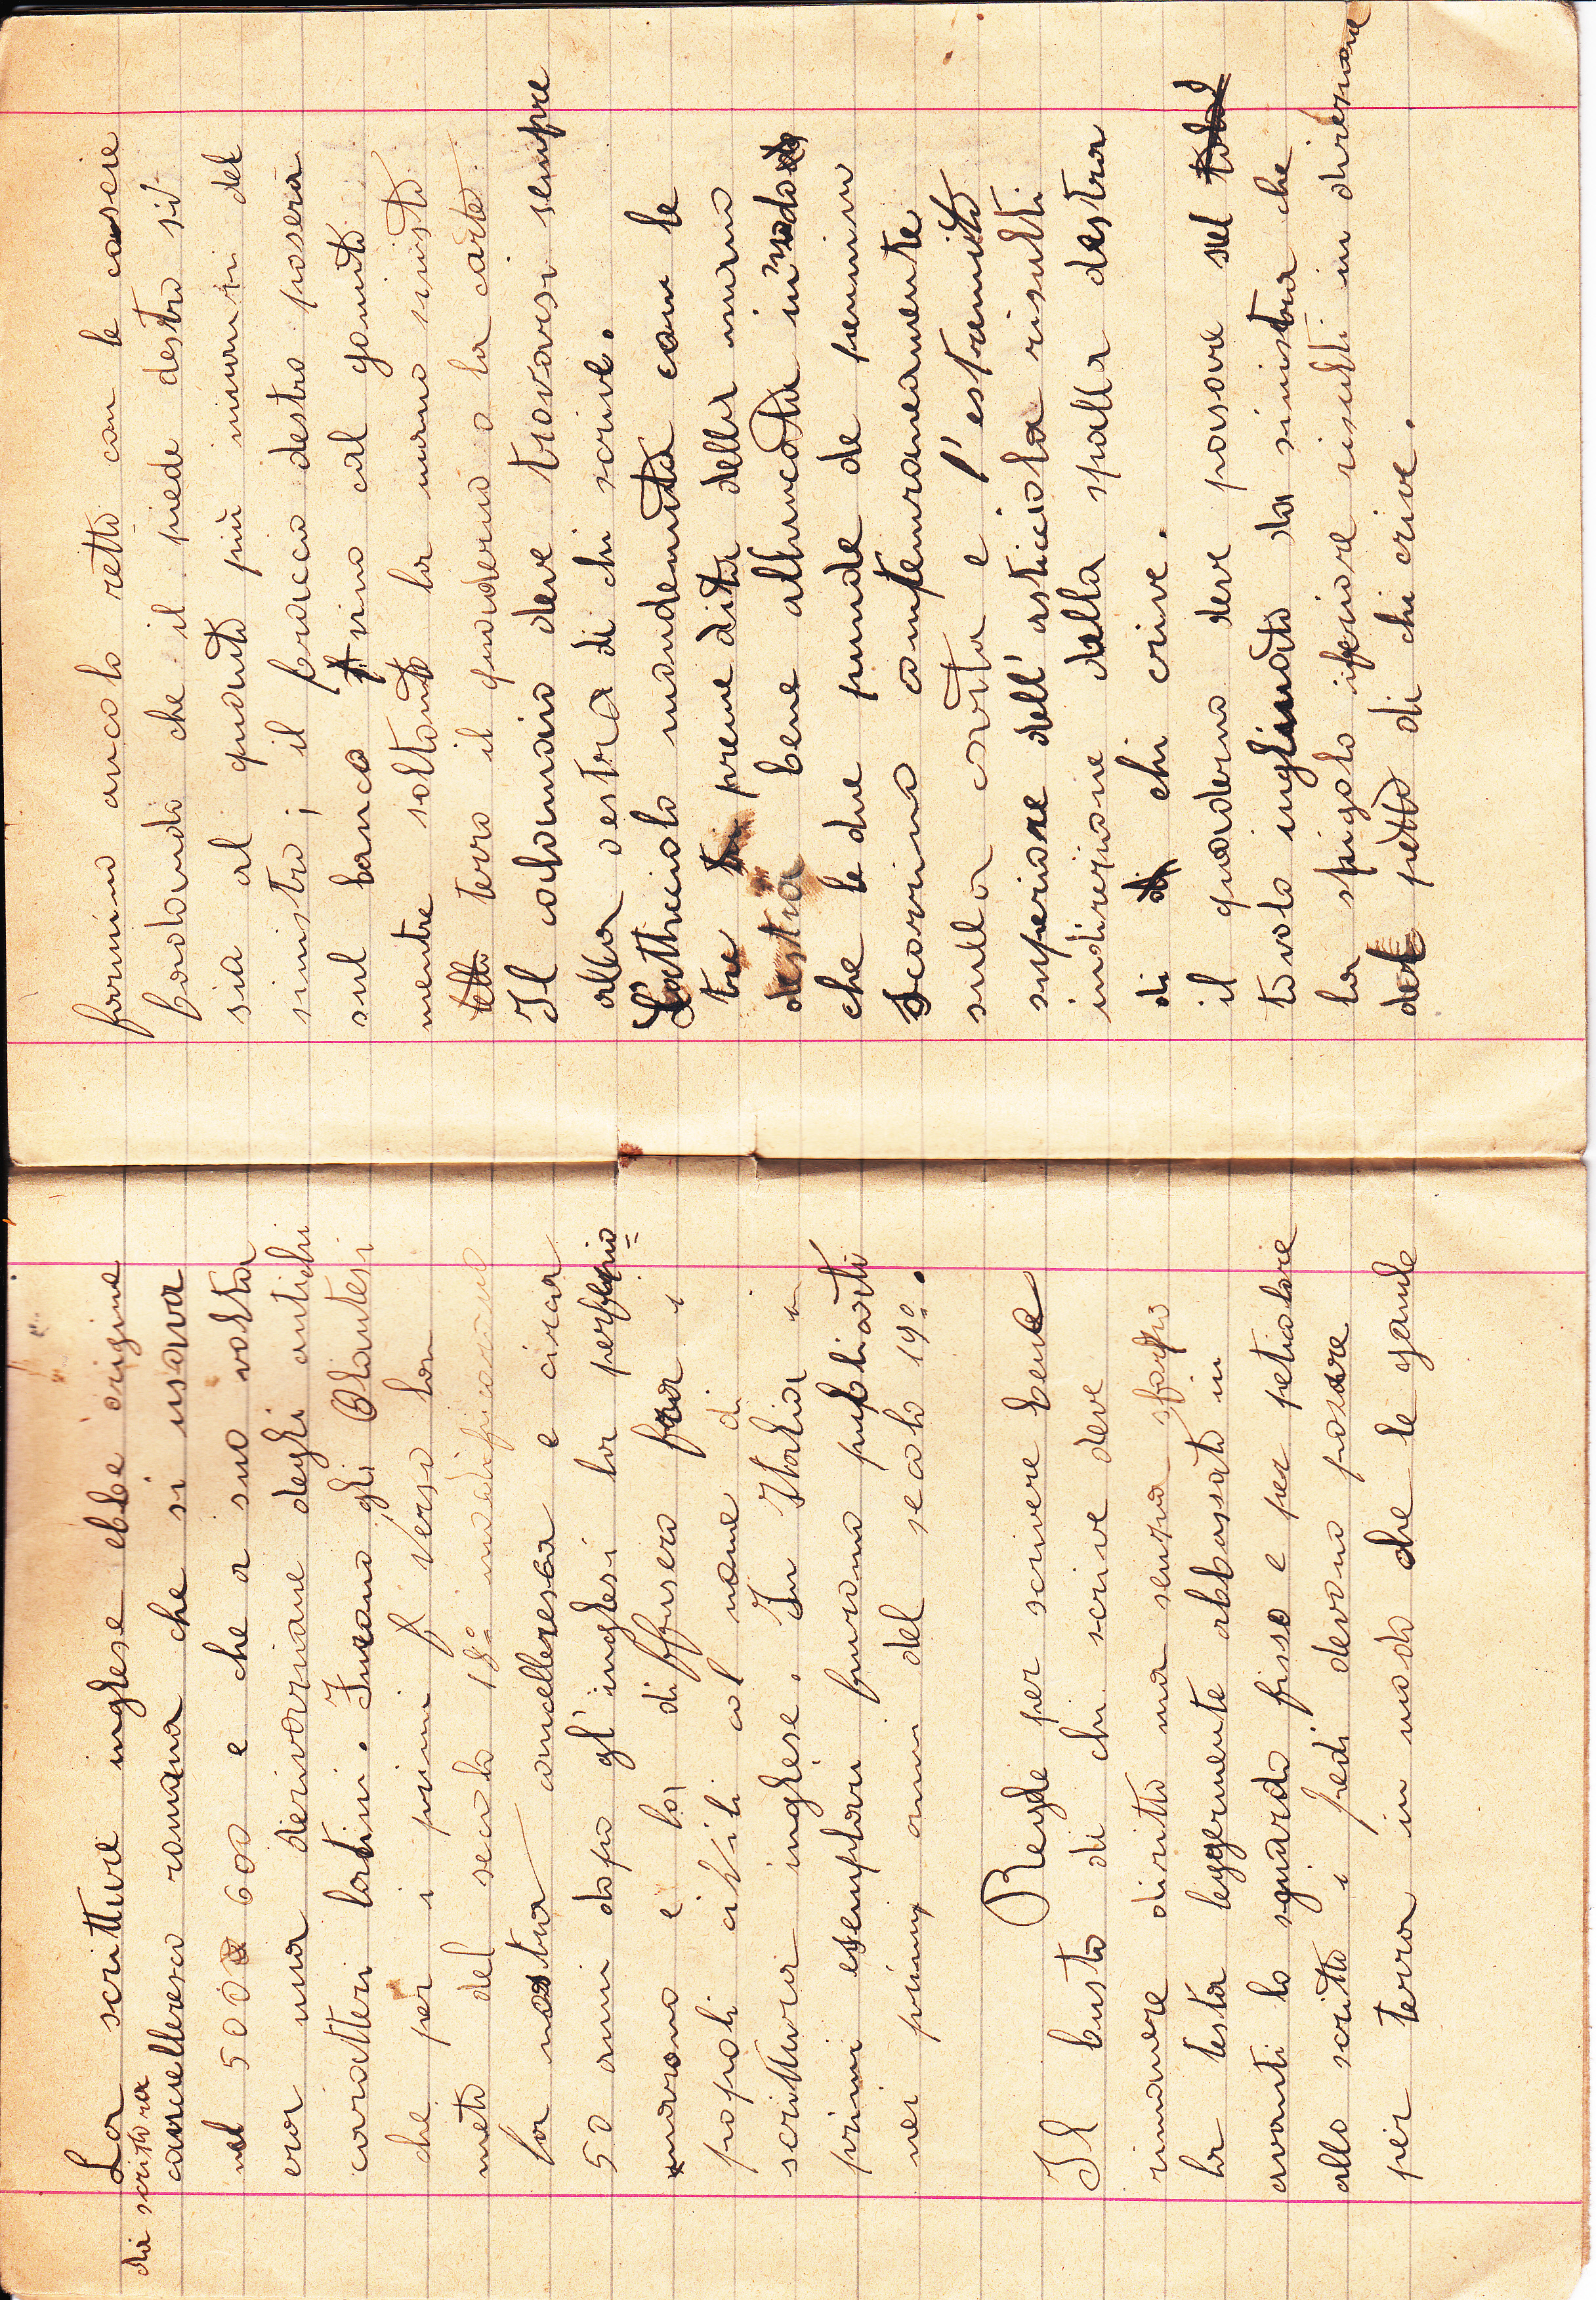 La scritture inglese ebbe origine
da scrittura
cancelleresca romana che si usava
nel 500 600 e che a suo volta
era una derivazione degli antichi
caratteri latini. Furono gli Olantesi
che per i primi verso la
metà del secolo 18° modificarono
la nostra cancelleresca e circa
50 anni dopo gl'inglesi la perfezio=
narono e la diffusero fra i
popoli civili col nome di
scrittura inglese. In Italia i
primi esemplari furono pubblicati
nei primi anni del secolo 19°.
Regole per scrivere bene
Il busto di chi scrive deve
rimanere diritto ma senza sforzo
la testa leggermente abbassata in
avanti lo sguardo fisso e per peticolare
allo scritto i piedi devono posare
per terra in modo che le gambe
formino ancolo retto con le coscie
badando che il piede destro si
sia al quanto più innanzi del
sinistro; il braccio destro poserà
sul banco fino al gomito
mentre soltanto la mano sinistra
terrà il quaderno o la carte.
Il calamaio deve trovarsi sempre
alla destra di chi scrive.
L'atticciolo mandenuta con le
tre preme dita della mano
destra bene allungata in modo
che le due punde de pennino
scorrino contemporaneamente
sulla carta e l'estramità
superiore dell'asticciola risulti
indirezione della spalla destra
di chi crive.
il quaderno deve posare sul
tavolo inglinato da sinistra che
lo spigolo iferiore risulti in direzione
del petto di chi crive.